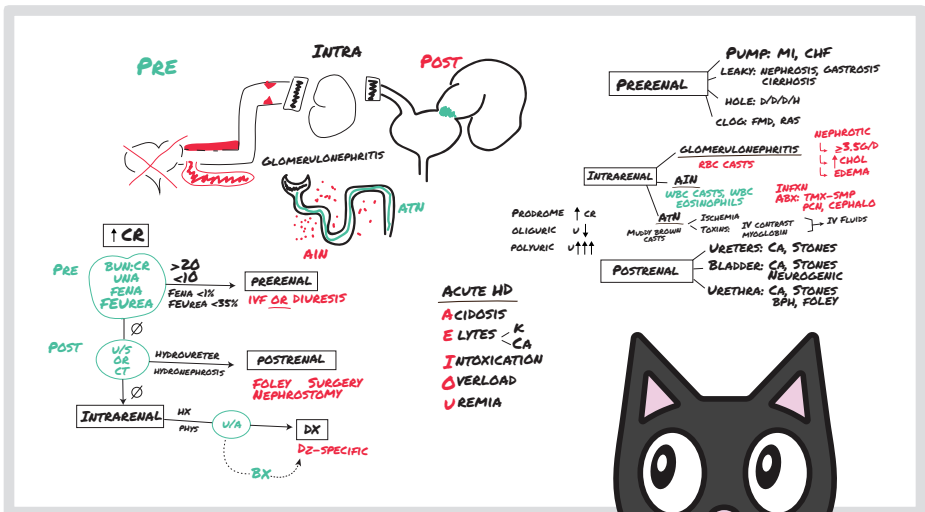 PRE
INTRA
POST
GLOMERULONEPHRITIS
ATN
AIN
↑ CR
PRE
BUN:CR
UNA
FENA
FEUREA
>20
<10
FENA <1%
FEUREA <35%
PRERENAL
IVF OR DIURESIS
Ø
POST
U/S
OR
CT
HYDROURETER
HYDRONEPHROSIS
POSTRENAL
FOLEY SURGERY
NEPHROSTOMY
Ø
INTRARENAL
HX
PHYS
U/A
DX
DZ-SPECIFIC
BX
ACUTE HD
ACIDOSIS
ELYTES K
CA
INTOXICATION
OVERLOAD
UREMIA
PRERENAL
PUMP: MI, CHF
LEAKY: NEPHROSIS, GASTROSIS
CIRRHOSIS
HOLE: D/D/D/H
CLOG: FMD, RAS
INTRARENAL
GLOMERULONEPHRITIS
RBC CASTS
NEPHROTIC
≥3.5G/D
↑ CHOL
EDEMA
AIN
WBC CASTS, WBC
EOSINOPHILS
INFXN
ABX: TMX-SMP
PCN, CEPHALO
ATN
MUDDY BROWN
CASTS
ISCHEMIA
TOXINS: IV CONTRAST
MYOGLOBIN
IV FLUIDS
PRODROME ↑ CR
OLIGURIC U ↓
POLYURIC U ↑↑↑
POSTRENAL
URETERS: CA, STONES
BLADDER: CA, STONES
NEUROGENIC
URETHRA: CA, STONES
BPH, FOLEY